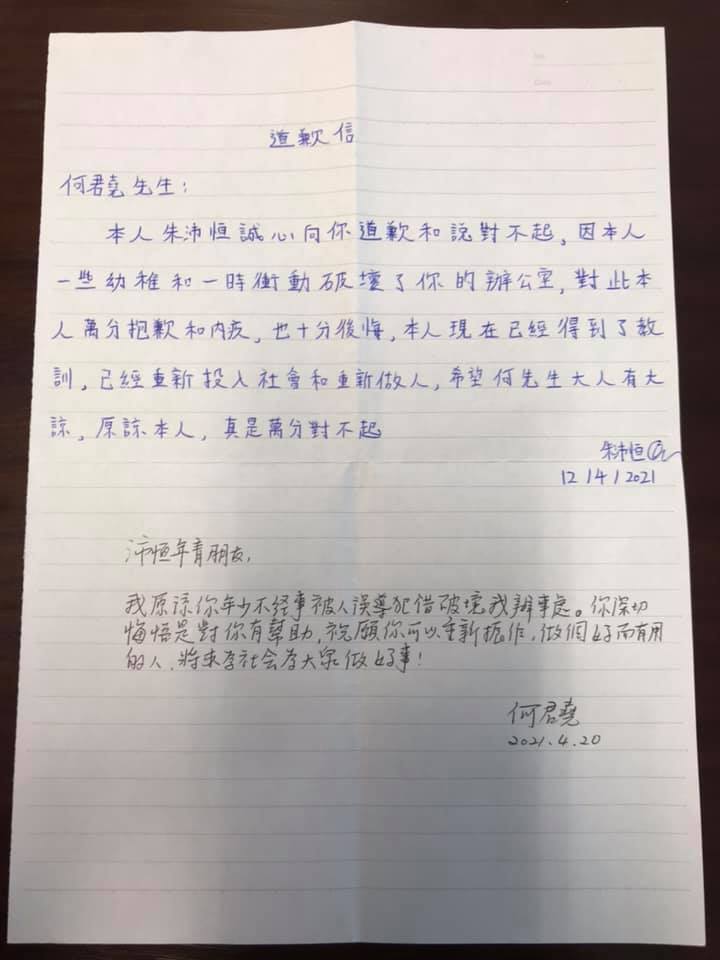 道歉信
何君堯先生：
本人朱沛恒誠心向你道歉和說對不起，因本人
一些幼稚和一時衝動破壞了你的辦公室，對此本
人萬分抱歉和内疚，也十分後悔，本人現在已經得到了教
訓，已經重新投入社會和重新做人，希望何先生大人有大
諒，原諒本人，真是萬分對不起
朱沛恒
12/4/2021
沛恒年青朋友，
我原諒你年少不经事被人误導犯借破壊我辦事處。你深切
悔悟是對你有幫助，祝願你可以重新振作，做個好而有用
的人，將來為社會為大家做好事！
何君堯
2021.4.20